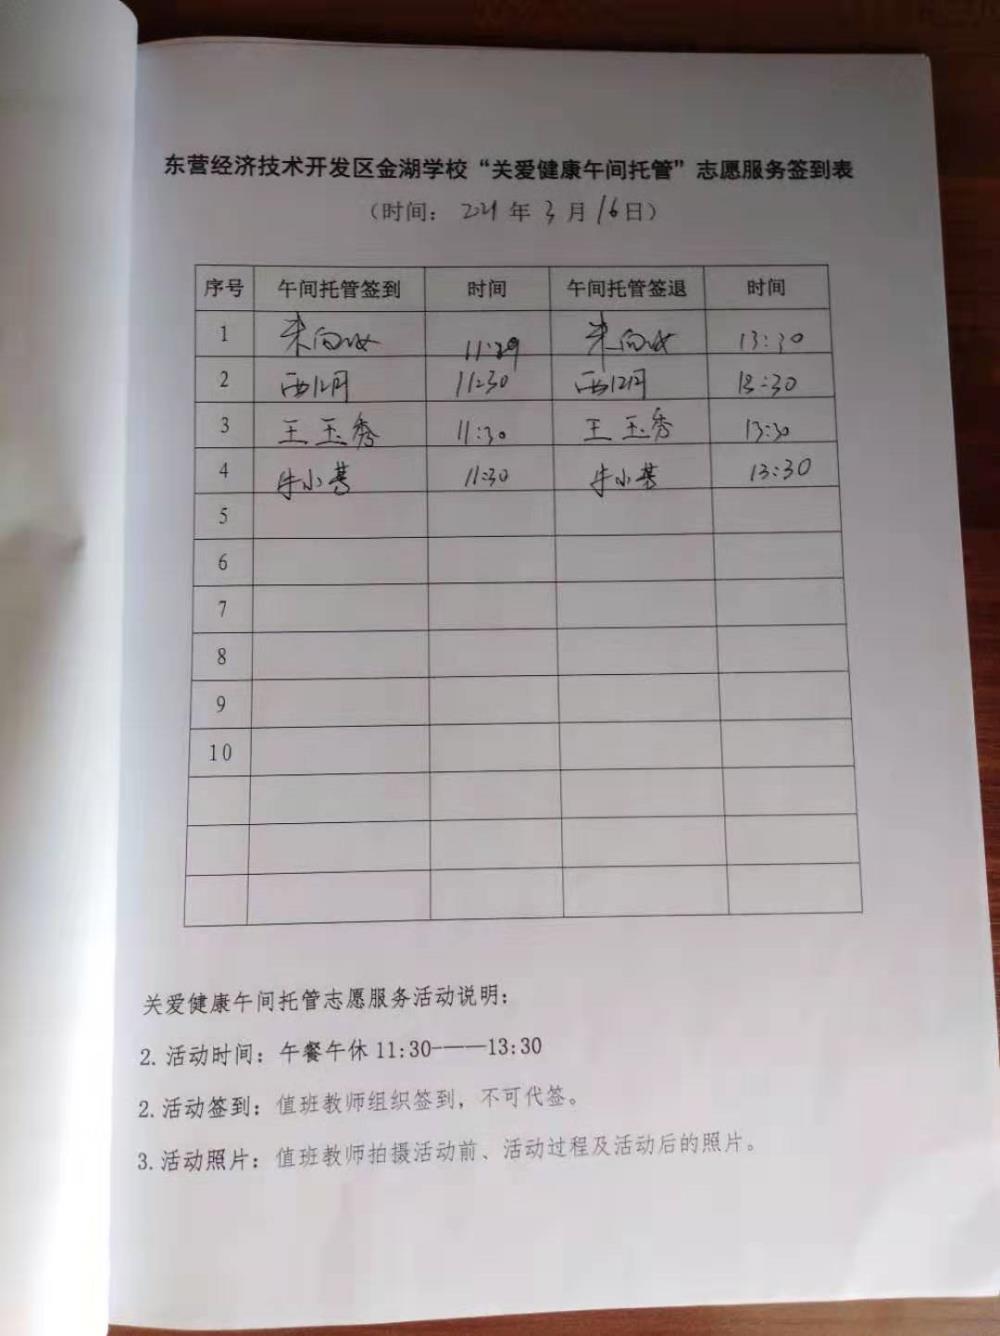 东营经济技术开发区金湖学校“关爱健康午间托管”志愿服务签到表
（时间： 2021 年 3 月 16 日）
序号 午间托管签到 时间 午间托管签退 时间
1 11:29 13:30
2 11:30 13:30
3 王玉秀 11:30 王玉秀 13:30
4 牛小 11:30 牛小 13:30
5
6
7
8
9
10
关爱健康午间托管志愿服务活动说明：
2. 活动时间：午餐午休 11:30——13:30
2. 活动签到：值班教师组织签到，不可代签。
3. 活动照片：值班教师拍摄活动前、活动过程及活动后的照片。